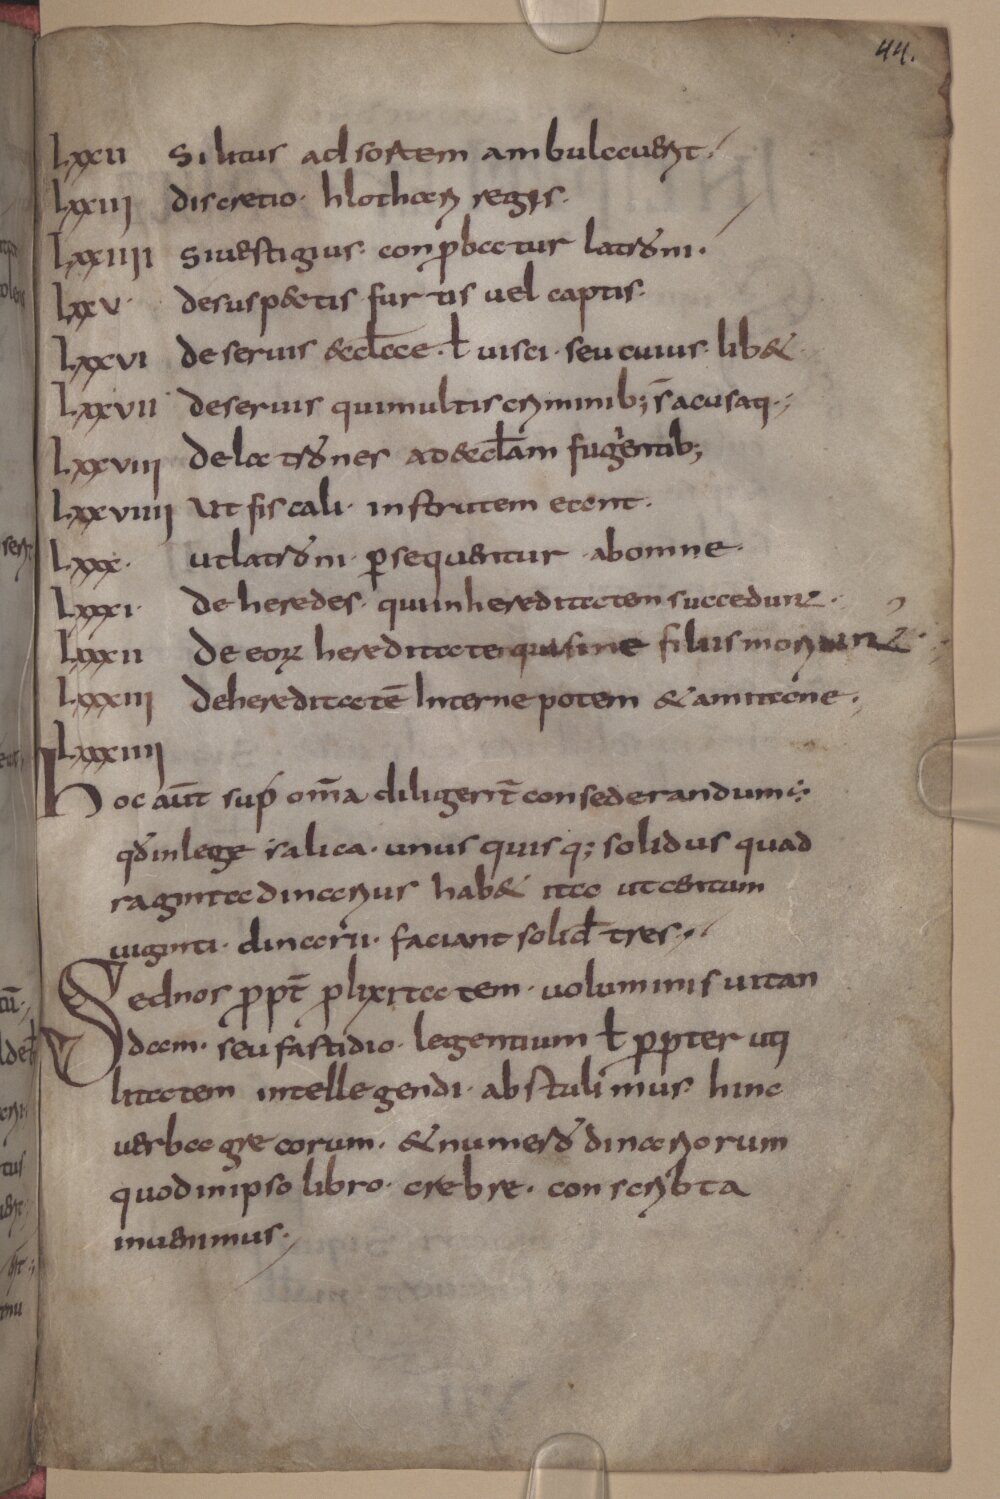 44.
Lxxii si litus ad sortem ambulauerit.
Lxxiii discretio· hlotharii regis·
Lxxiiii siuestigius· conp̱batur latroni·
Lxxv· desuspectis furtis uel captis·
Lxxvi deseruis &cl̄ae· ł uisci· seu cuius· lib&
Lxxvii deseruis quimultis criminib; s̄ acusati·;
Lxxviii de latrones ad &cl̄am fugientib;
Lxxviiii ut fiscali· infertitem eant·
Lxxx· utlatroni· ꝑsequentur · abomne·
Lxxxi· de heredes· quiinhereditatem succedunt·
Lxxxii de eoꝝ hereditate quisine filiis moriunt·
Lxxxiii dehereditatē Interne potem & amitane·
Lxxxiiii
hoc aūt sup̄ om̄a diligent̄ consederandum·;
qđinlege salica· unus quis q; solidus quad
raginta dinarius hab& ita ut centum
uiginti· dinarii· faciant solid̄ tres·,
Sednos ꝓpt̄ ꝓlixitatem· uoluminis uitan
dam· seu fastidio· legentium ł ꝓpter uti
litatem intellegendi· abstulimus· hinc
uerba grecorum· & numero dinariorum
quodinipso libro· crebre· conscribta
inuenimus·